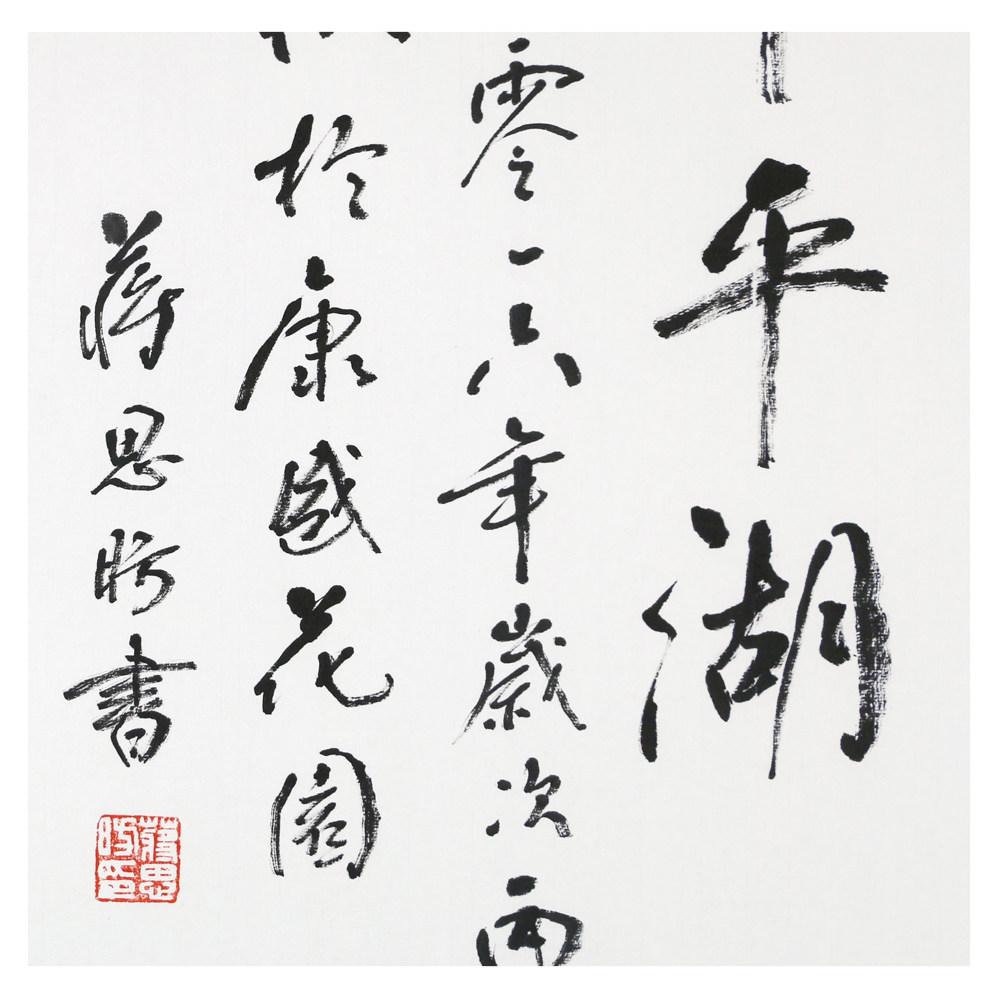 平湖
零一六年歲次丙
於康盛花園
蔣思書
蔣思印